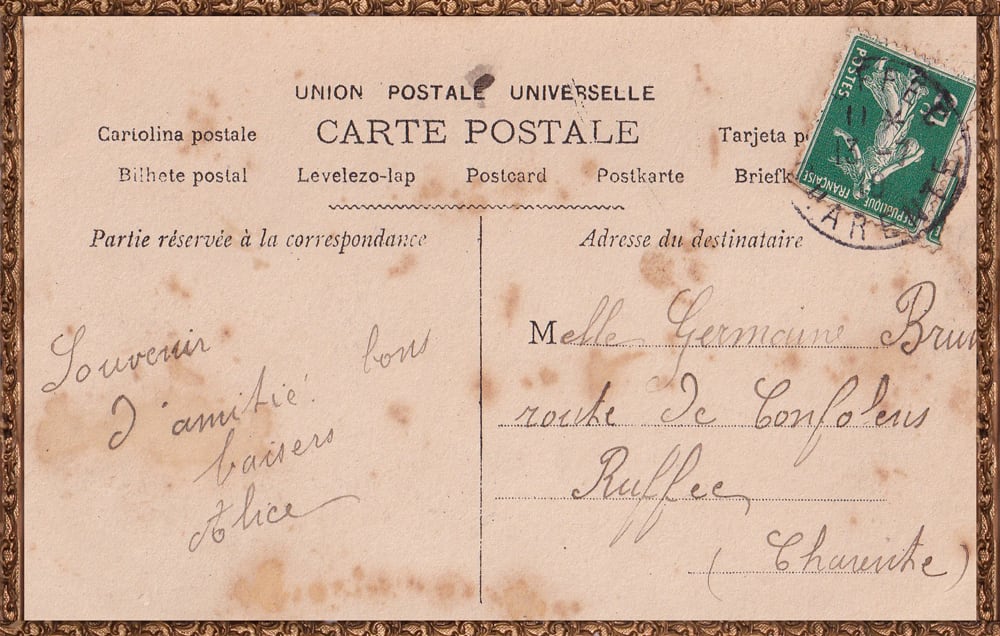 UNION POSTALE UNIVERSELLE
Cartolina postale CARTE POSTALE Tarjeta p
Bilhete postal Levelezo-lap Postcard Postkarte Briefk
Partie réservée à la correspondance
Souvenir
d'amitié. bons
baisers
Alice
POSTES
REPUBLIQUE FRANÇAISE
Adresse du destinataire
Melle Germaine Brun
route de Confolens
Ruffec
(Charente)